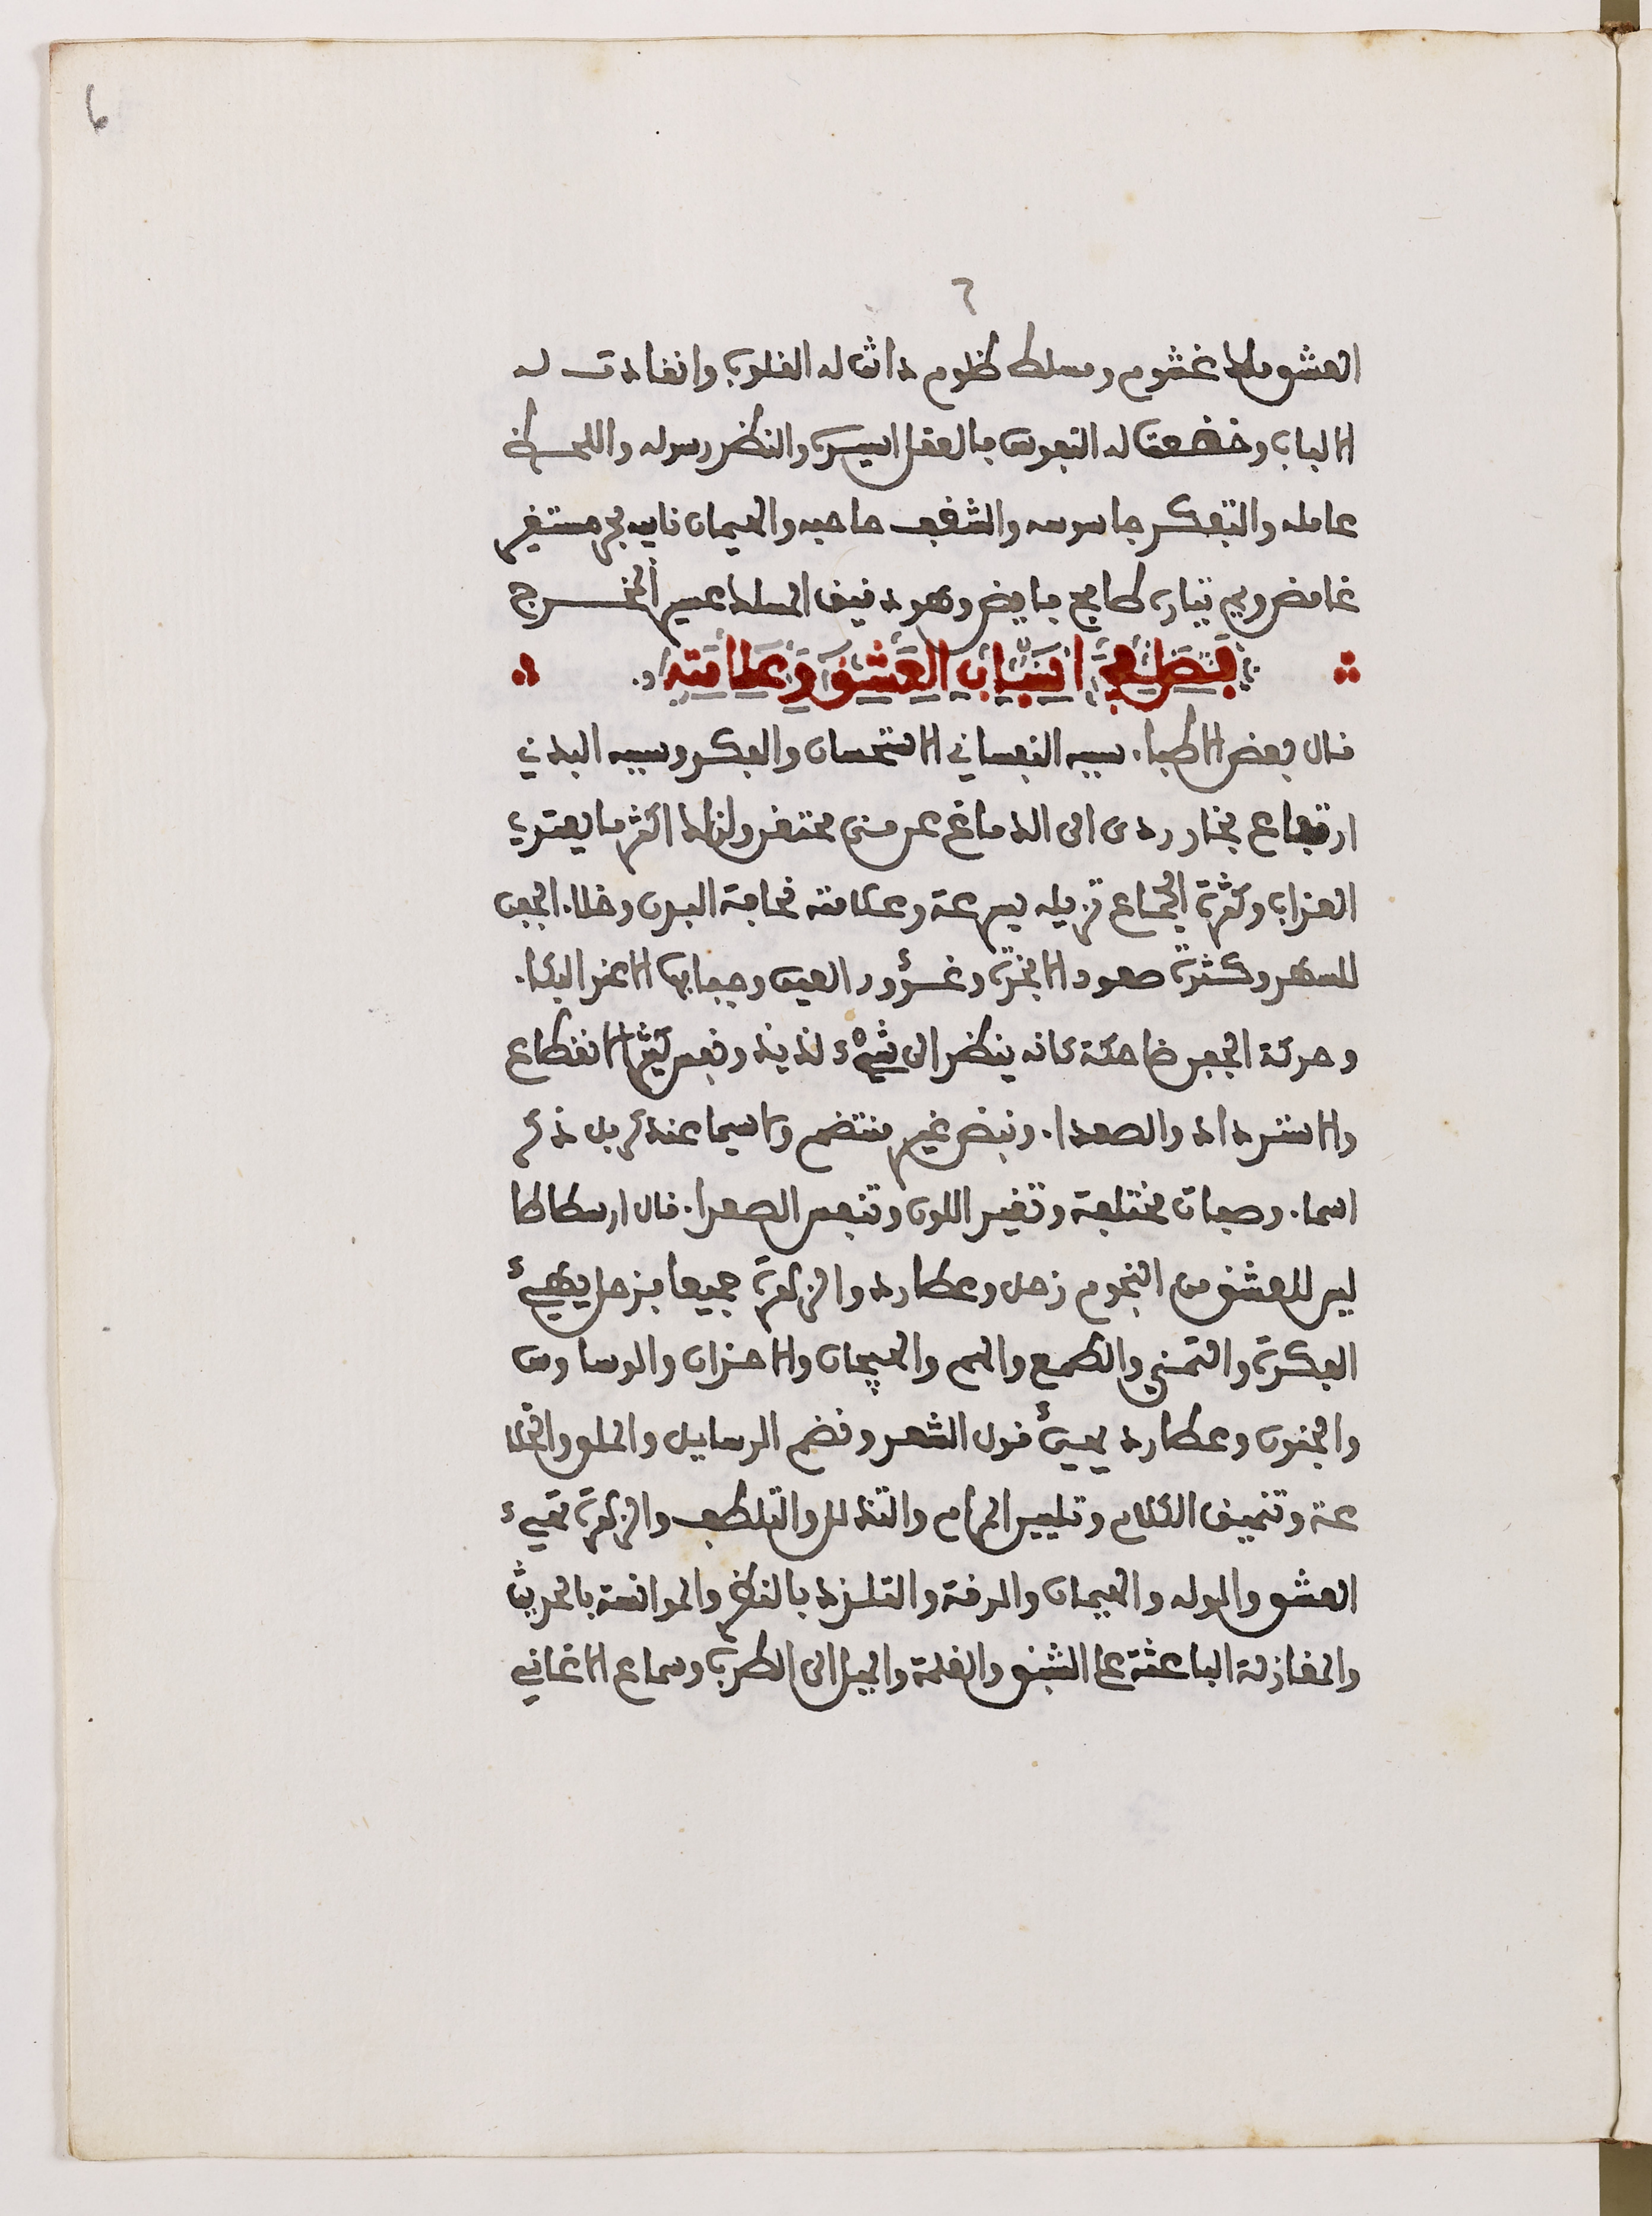 ٦
6
العشق ملك غشوم ومسلط ظلوم دانت له القلوب وانقادت له
الالباب وخضعت له النفوس فالعقل اسيره والنظر رسوله واللحظ
عامله والتفكر جاسوسه والشغف حاجبه والهيمان نايبه بحر مستقر
غامض ويم تياره طافح فايض وهو دقيق المسلك عسير المخرج
فصل في اسباب العشق وعلامته
قال بعض الاطباء سببه النفساني الاستحسان والفكر وسببه البدني
ارتفاع بخار ردى الى الدماغ عن منى محتقن ولذلك اكثر ما يعتري
العزاب وكثرة الجماع تزيله بسرعة وعلامته نحافة البدن وخلاء الجفن
للسهر وكثرة صعود الابخرة وغؤور العين وجفافها الا عند البكاء
وحركة الجفن ضاحكة كانه ينظر الى شيء لذيذ ونفس كثير الانقطاع
والاسترداد والصعداء ونبض غير منتضم ولاسيما عند ذكر
اسماء وصفات مختلفة وتغير اللون وتنفس الصعداء قال ارسطاطا
ليس للعشق من النجوم زحل وعطارد والزهرة جميعا فزحل يهيئ
الفكرة والتمني والطمع والهم والهيجان والاحزان والوساوس
والجنون وعطارد يهيئ قول الشعر ونضم الرسايل والملق والخلا
عة وتنميق الكلام وتليين المرام والتذلل والتلطف والزهرة تهيئ
العشق والوله والهيمان والرقة والتلذذ بالنظر والموانسة بالحديث
والمغازلة الباعثة على الشبق والغلمة والميل الى الطرب وسماع الاغاني